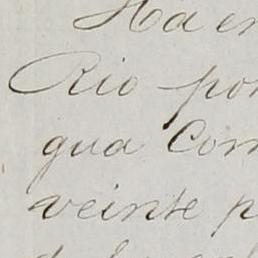 Ha en
Rio por
gua Com
veinte p